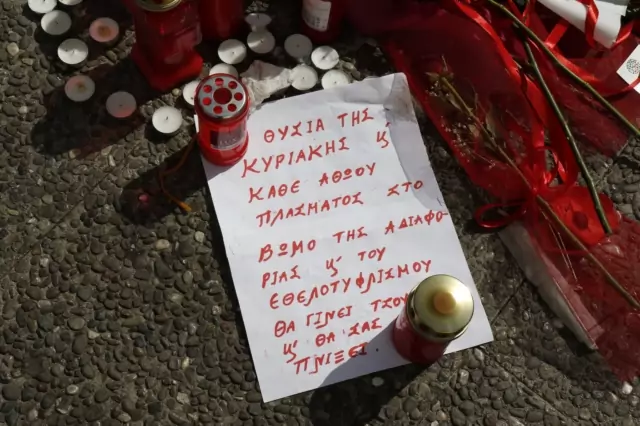 ΘΥΣΙΑ ΤΗΣ
ΚΥΡΙΑΚΗΣ κ'
ΚΑΘΕ ΑΘΩΟΥ
ΠΛΑΣΜΑΤΟΣ ΣΤΟ
ΒΩΜΟ ΤΗΣ ΑΔΙΑΦΟ-
ΡΙΑΣ κ' ΤΟΥ
ΕΘΕΛΟΤΥΦΛΙΣΜΟΥ
ΘΑ ΓΙΝΕΙ ΤΣΟΥ
κ' ΘΑ ΣΑΣ
ΠΝΙΞΕΙ.